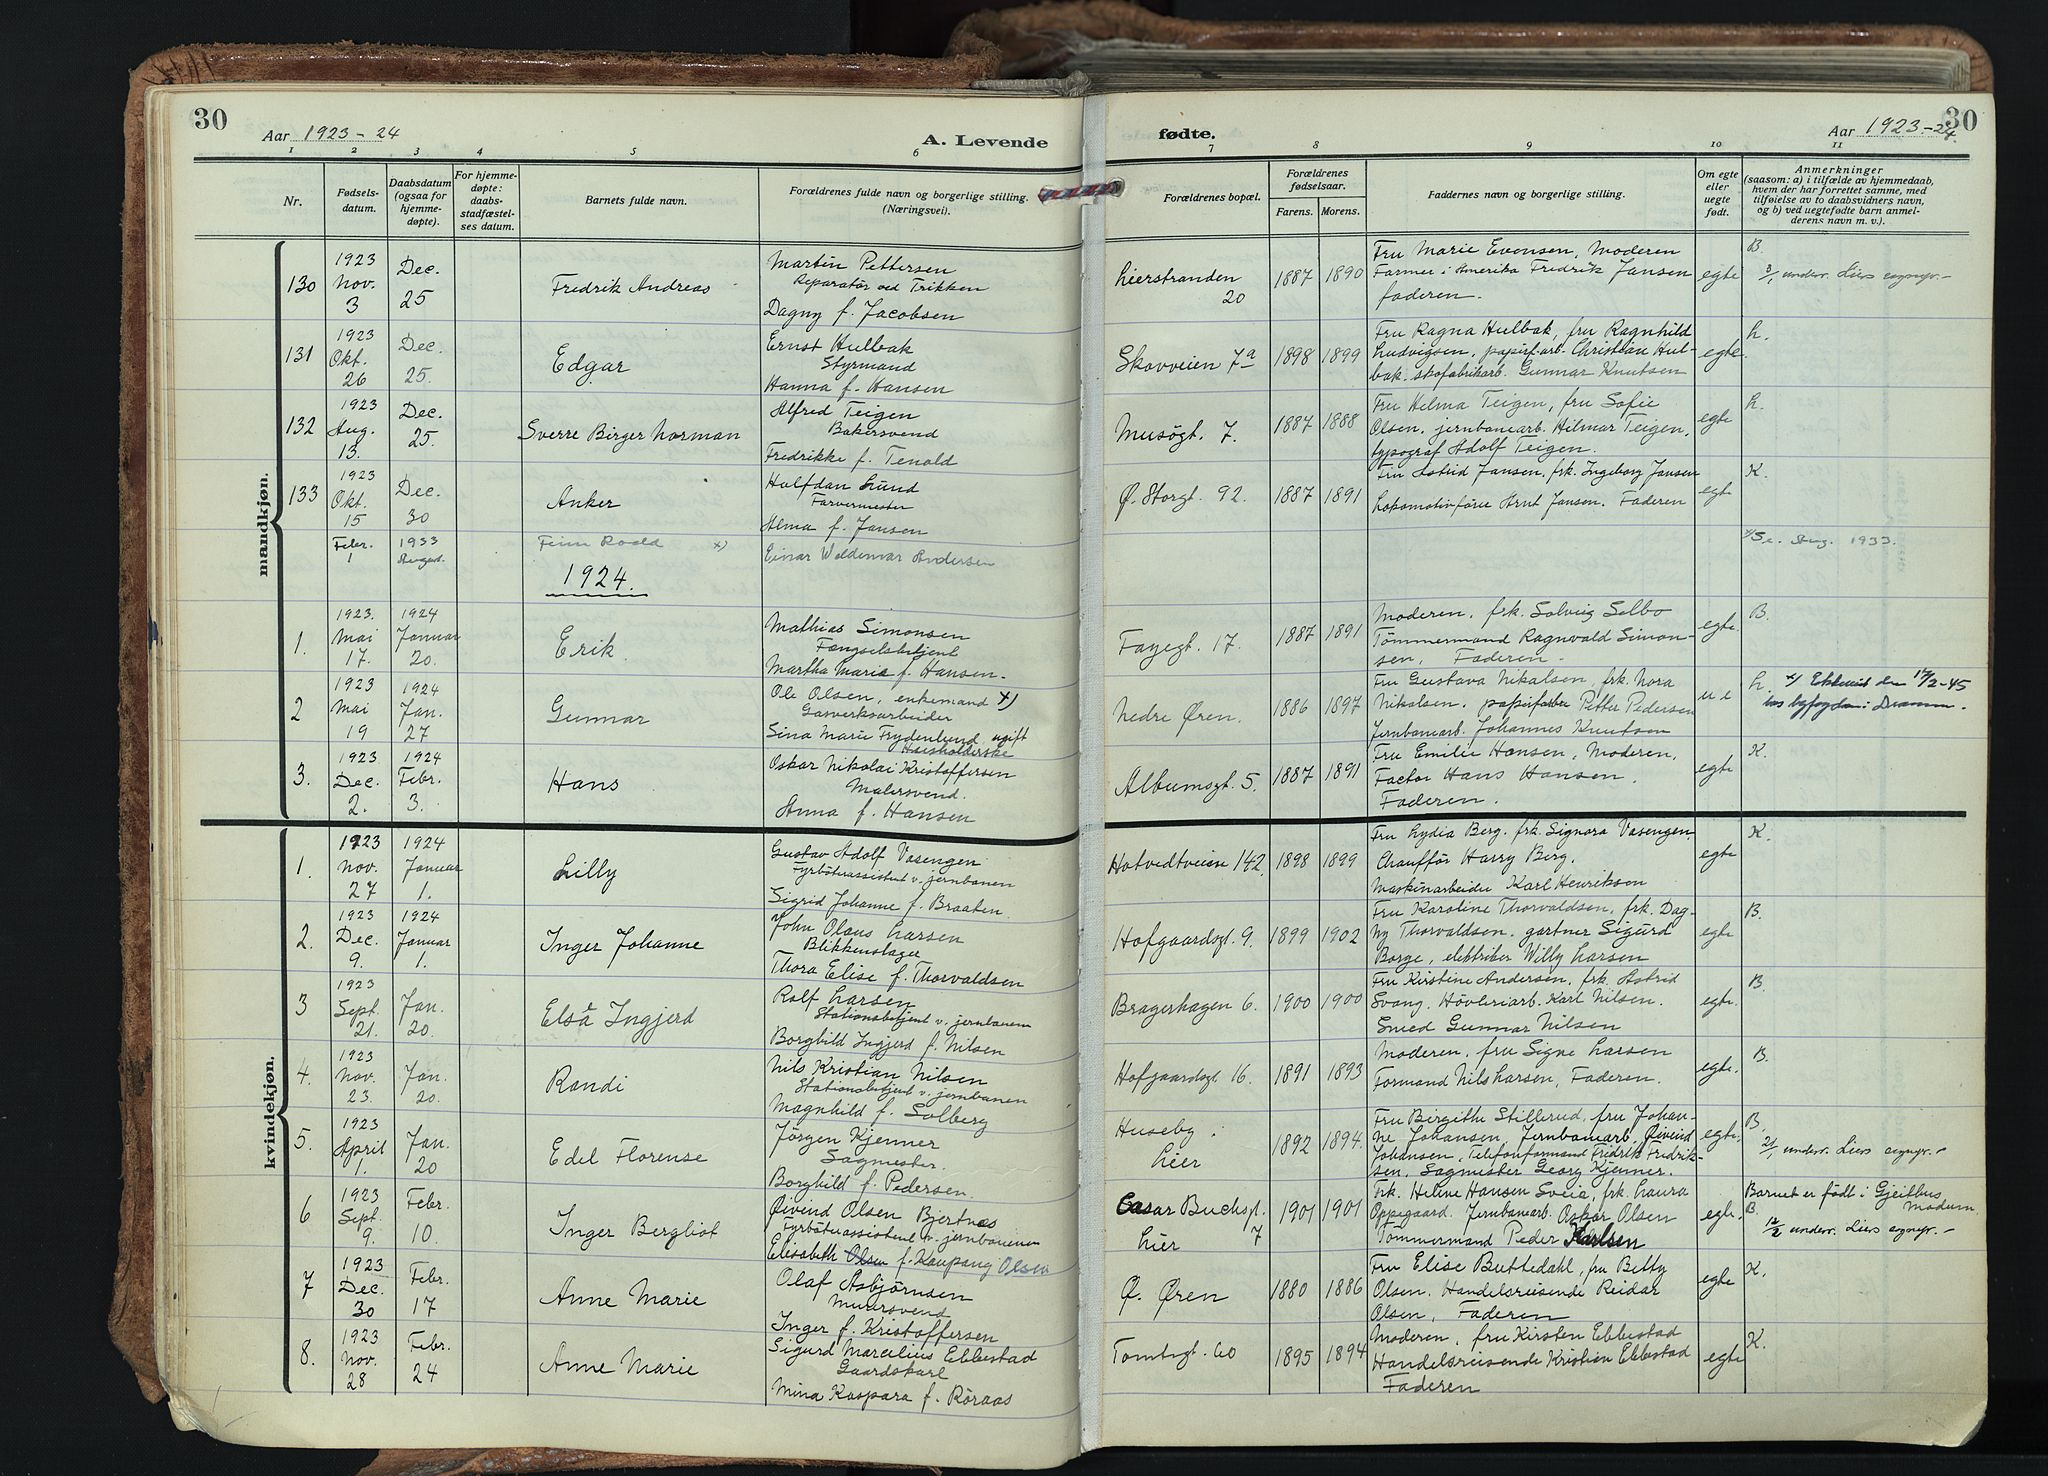 30
Aar 1923-24
A. Levende
fødte.
Aar 1923-24.
30
1 2 3 4 5 6 7 8 9 10 11
Nr.
Fødsels-
datum.
Daabsdatum
(ogsaa for
hjemme-
døpte).
For hjemme-
døpte:
daabs-
stadfæstel-
ses datum.
Barnets fulde navn.
Forældrenes fulde navn og borgerlige stilling.
(Næringsvei).
Forældrenes bopæl.
Forældrenes
fødselsaar.
Farens. Morens.
Faddernes navn og borgerlige stilling.
Om egte
eller
uegte
født.
Anmerkninger
(saasom: a) i tilfælde av hjemmedaab,
hvem der har forrettet samme, med
tilføielse av to daabsvidners navn,
og b) ved uegtefødte barn anmel-
derens navn m. v.).
mandkjøn.
130
1923
Nov.
3
Dec.
25
Fredrik Andreas
Martin Pettersen
Reparatør ved Trikken
Dagny f. Jacobsen
Lierstranden
20
1887 1890
Fru Marie Evensen, Moderen
Farmer i Amerika Fredrik Jansen
faderen.
egte
B.
3/1 underr. Liers sognepr.-
131
1923
Okt.
26
Dec.
25.
Edgar
Ernst Hulbak
Styrmand
Hanna f. Hansen
Skovveien 7a
1898 1899
Fru Ragna Hulbak, fru Ragnhild
Ludvigsen, papirf.arb. Christian Hul-
bak. skofabrikarb. Gunnar Knutsen
egte.
L.
132
1923
Aug.
13.
Dec.
25.
Sverre Birger Norman
Alfred Teigen
Bakersvend
Fredrikke f. Tenold
Musøgt. 7.
1887 1888
Fru Helma Teigen, fru Sofie
Olsen, jernbanearb. Hilmar Teigen,
typograf Adolf Teigen.
egte
L.
133
1923
Okt.
15
Dec.
30
Anker
Halfdan Lund
Farvermester
Alma f. Jansen
Ø. Storgt. 92.
1887 1891
Fru Astrid Jansen, frk. Ingeborg Jansen
Lokomotivfører Arnt Jansen. Faderen
egte
K.
Febr.
1
1933
August.
Finn Roald x)
Einar Waldemar Andersen
x) Se Aug. 1933.
1924.
1.
1923.
Mai
17.
1924
Januar
20.
Erik.
Mathias Simonsen
Fængselsbetjent
Martha Marie f. Hansen.
Fayegt. 17.
1887 1891
Moderen, frk. Solveig Selbo
Tømmermand Ragnvald Simon-
sen, Faderen.
egte.
B.
2
1923
Mai
19
1924
Jan.
27
Gunnar
Ole Olsen, enkemand x)
Gasverksarbeider
Sina Marie Frydenlund ugift
Husholderske
Nedre Øren.
1886 1897
Fru Gustava Nikalsen, frk. Nora
Nikolsen, papirfarber Petter Pedersen
Jernbanearb. Johannes Knutsen
u e
L.
x) Ektevist den 17/2-45
hos byfogden i Dramm.
3.
1923
Dec.
2.
1924
Febr.
3.
Hans
Oskar Nikolai Kristoffersen
Malersvend.
Anna f. Hansen
Albumsgt. 5.
1887 1891
Fru Emilie Hansen, Moderen,
Factor Hans Hansen.
Faderen.
egte
K.
kvindekjøn.
1.
1923
Nov.
27
1924
Januar
1.
Lilly
Gustav Adolf Vasengen
Fyrbøterassistent v. jernbanen
Sigrid Johanne f. Braaten.
Hotvedtveien 142.
1898 1899
Fru Lydia Berg. frk. Signora Vasengen
Chauffør Harry Berg.
Maskinarbeider Karl Henriksen
egte
K.
2.
1923
Dec.
9.
1924
Januar
1.
Inger Johanne
John Olaus Larsen
Blikkenslager
Thora Elise f. Thorvaldsen
Hofgaardsgt. 9.
1899 1902
Fru Karoline Thorvaldsen, frk. Dag-
ny Thorvaldsen, gartner Sigurd
Borge, elektriker Willy Larsen
egte
B.
3
1923
Sept.
21.
Jan.
20.
Elsa Ingjerd
Rolf Larsen
Stationsbetjent v. jernbanen
Borghild Ingjerd f. Nilsen
Bragerhagen 6.
1900 1900
Fru Kirstine Andersen, frk. Astrid
Svang, Høvleriarb. Karl Nilsen.
Smed Gunnar Nilsen
egte.
B.
4.
1923
Nov.
23
Jan.
20.
Randi
Nils Kristian Nilsen
Stationsbetjent v. jernbanen
Magnhild f. Solberg
Hofgaardsgt. 16.
1891 1893
Moderen, fru Signe Larsen
Formand Nils Larsen, Faderen.
egte.
B.
5.
1923
April
1.
Jan.
20
Edel Florense
Jørgen Kjenner
Sagmester.
Borghild f. Pedersen.
Huseby i
Lier
1892 1894.
Fru Birgithe Stillerud, fru Johan-
ne Johansen, Jernbanearb. Øivind
Johansen, Telefonformand Fredrik Fredrik-
sen, Sagmester Georg Kjenner.
egte.
B.
21/1 underr. Liers sognepr.-
6
1923
Sept.
9.
Febr.
10.
Inger Bergliot
Øivind Olsen Bjertnæs
Fyrbøterassistent v. jernbanen
Elisabeth Olsen f. Kaupang Olsen
Cæsar Buchsgt.
Lier 7
1901 1901
Frk. Helene Hansen Sveia, frk. Laura
Oppegaard. Jernbanearb. Oskar Olsen
Tømmermand Peder Karlsen
egte.
Barnet er født i Gjeithus
Modum.
B.
12/2 underr. Liers sognepr.-
7
1923
Dec.
30
Febr.
17
Anne Marie
Olaf Asbjørnsen
Murersvend
Inger f. Kristoffersen
Ø. Øren
1880 1886
Fru Elise Buttedahl, fru Betty
Olsen. Handelsreisende Reidar
Olsen, Faderen
egte
K.
8.
1923
Nov.
28
Febr.
24
Anne Marie
Sigurd Marcelius Ebbestad
Gaardskarl
Mina Kaspara f. Røraas
Tomtegt. 60
1895 1894
Moderen, fru Kirsten Ebbestad
Handelsreisende Kristian Ebbestad
Faderen
egte
K.